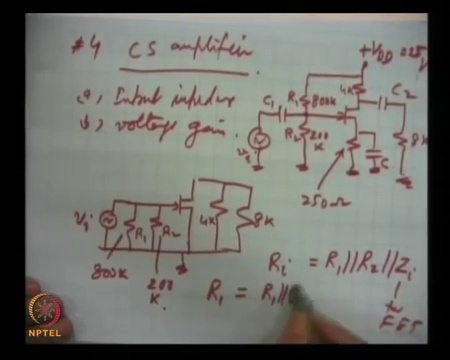 #4 CS amplifier.
a, Input impedance
b) voltage gain.
+VDD = 25V
4K
C2
C1
R1
800K
R2
200
K
8K
C
Vi
250Ω
Vi
R1
R2
4K
8K
800K
200
K.
Ri = R1||R2||Zi
to
FET
R1 = R1||
NPTEL